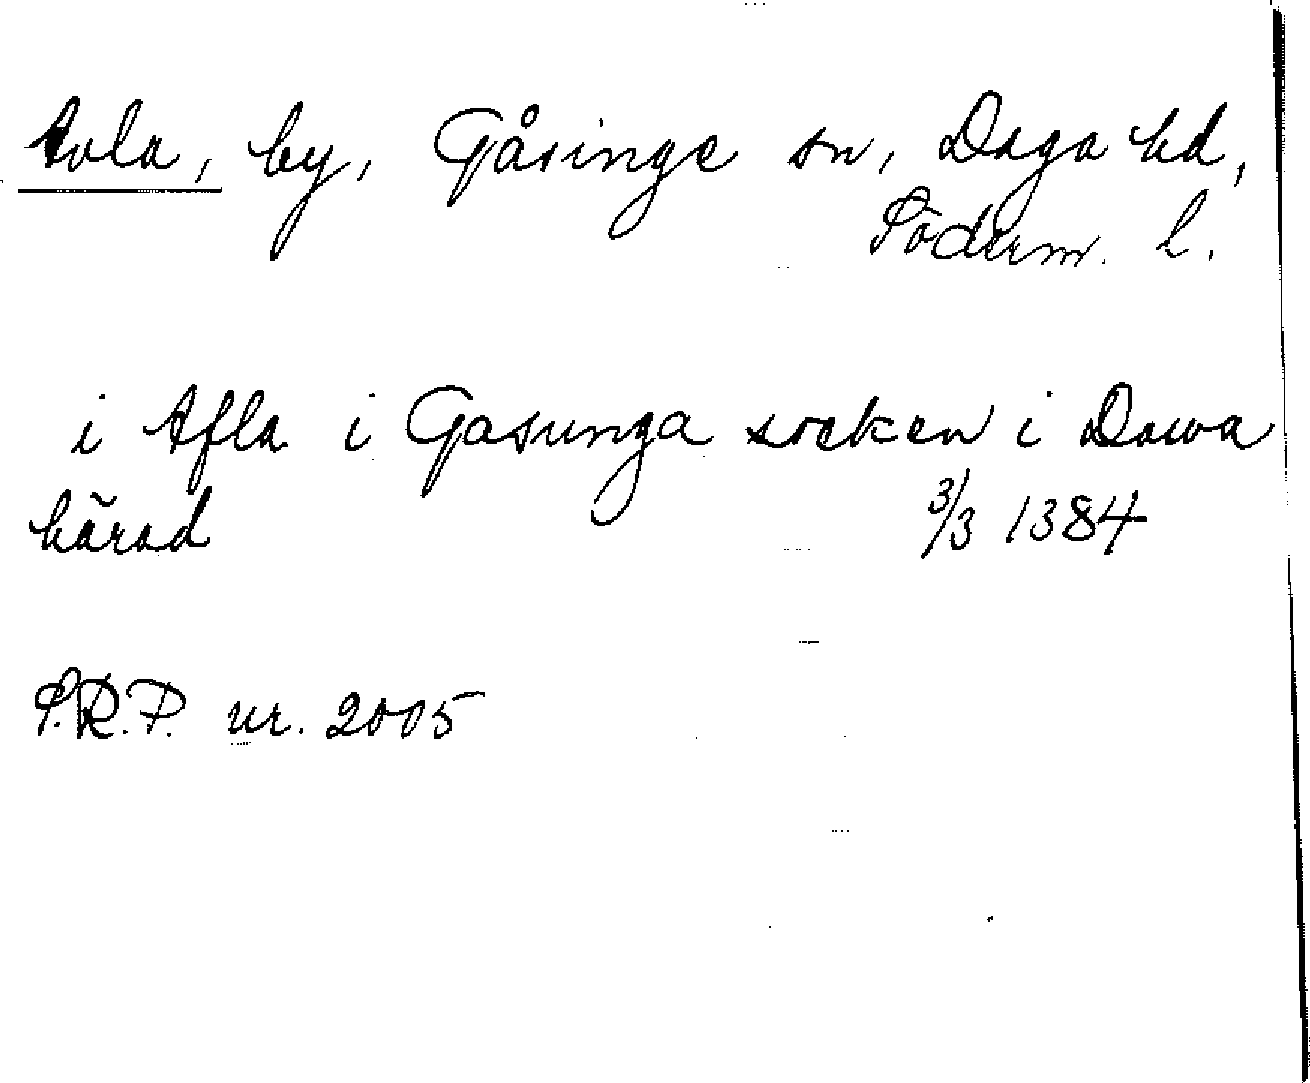 Avla, by, Gåsinge sn, Daga hd,
Söderm. l.
i Afla i Gasunga socken i Dawa
härad 3/3 1384
S.R.P. nr. 2005